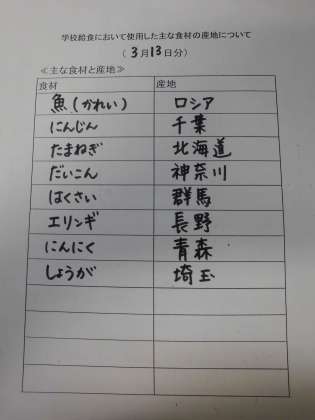 学校給食において使用した主な食材の産地について
(3月13日分)
≪主な食材と産地≫
食材 産地
魚(かれい) ロシア
にんじん 千葉
たまねぎ 北海道
だいこん 神奈川
はくさい 群馬
エリンギ 長野
にんにく 青森
しょうが 埼玉